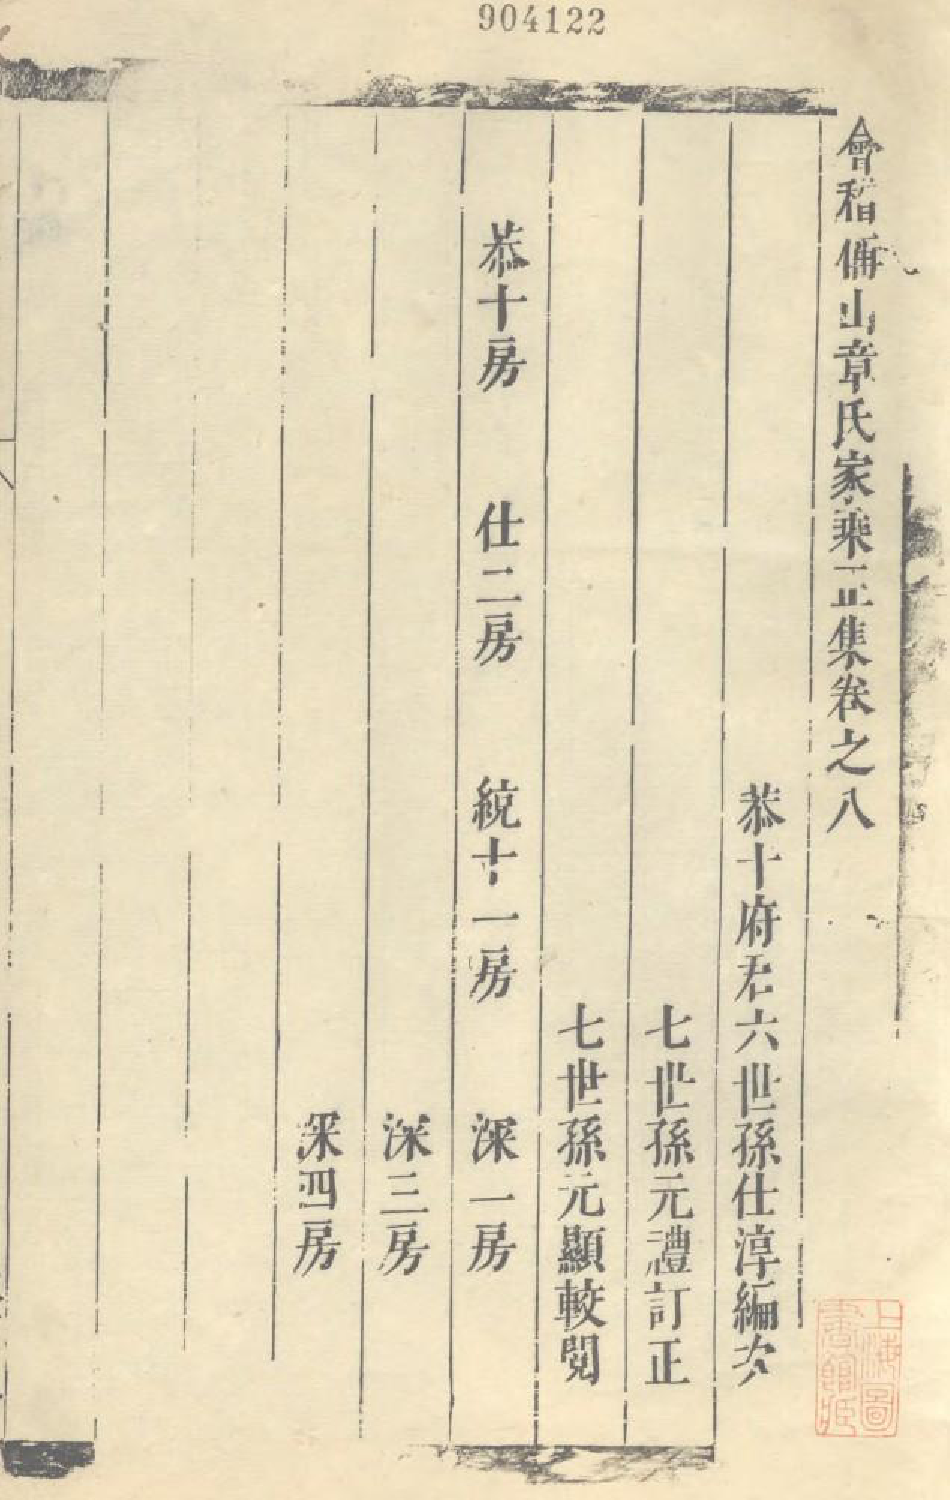 904122
會稽偁山章氏家乘正集卷之八
恭十府君六世孫仕淳編次
七世孫元禮訂正
七世孫元顯較閱
恭十房 仕二房 統十一房 深一房
深三房
深四房
上海圖書館藏